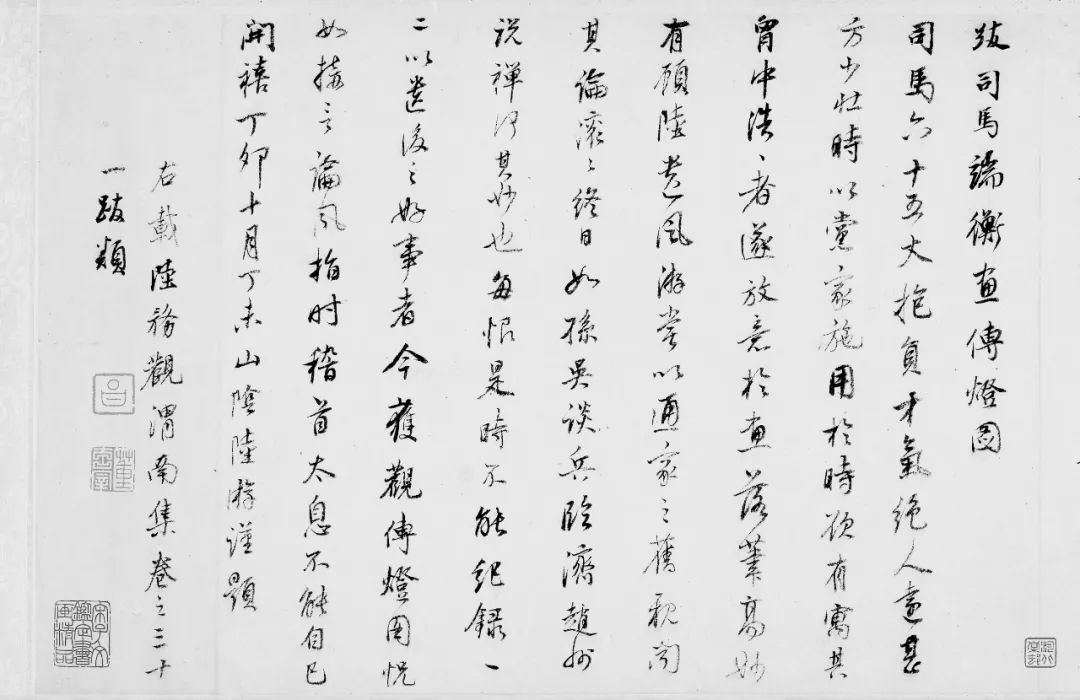 跋司馬端衡畫傳燈圖
司馬六十五丈抱負才氣絕人遠甚
方少壯時以黨家施用於時欲有寓其
胷中浩〻者遂放意於畫落筆高妙
有顧陸遺風游嘗以通家之舊親聞
其論滾〻終日如孫吳談兵臨濟趙州
說禪何其妙也每恨是時不能紀錄一
二以遺後之好事者今獲觀傳燈圖恍
如接言論風指时稽首太息不能自已
開禧丁卯十月丁未山陰陸游謹題
右載陸務觀渭南集卷之三十
一跋類